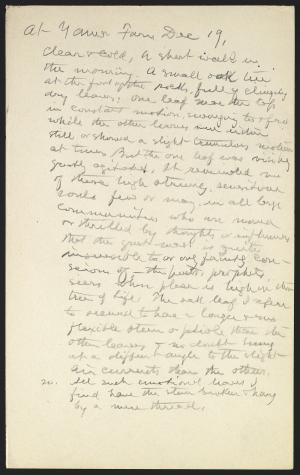 At Yama Farm Dec 19,
Clear & cold, A short walk in
the morning. A small oak tree
at the foot of the rocks, full of clinging
dry leaves: One leaf near the top
in constant motion, swaying to & fro
while the other leaves were either
still or showed a slight tremulous motion
at times. But the one leaf was visibly
greatly agitated. It reminded me
of those high strung, sensitive
souls few or many, in all large
communities who are moved
or thrilled by thoughts or influences
that the great mass is quite
insensible to or only faintly con-
scious of — the poets, prophets,
seers whose place is high in the
tree of life. The oak leaf I refer
to seemed to have a longer & more
flexible stem or petiole than the
other leaves & no doubt hung
at a different angle to the slight
air currents than the others.
20. All such emotional leaves I
find have the stem broken & hang
by a mere thread.